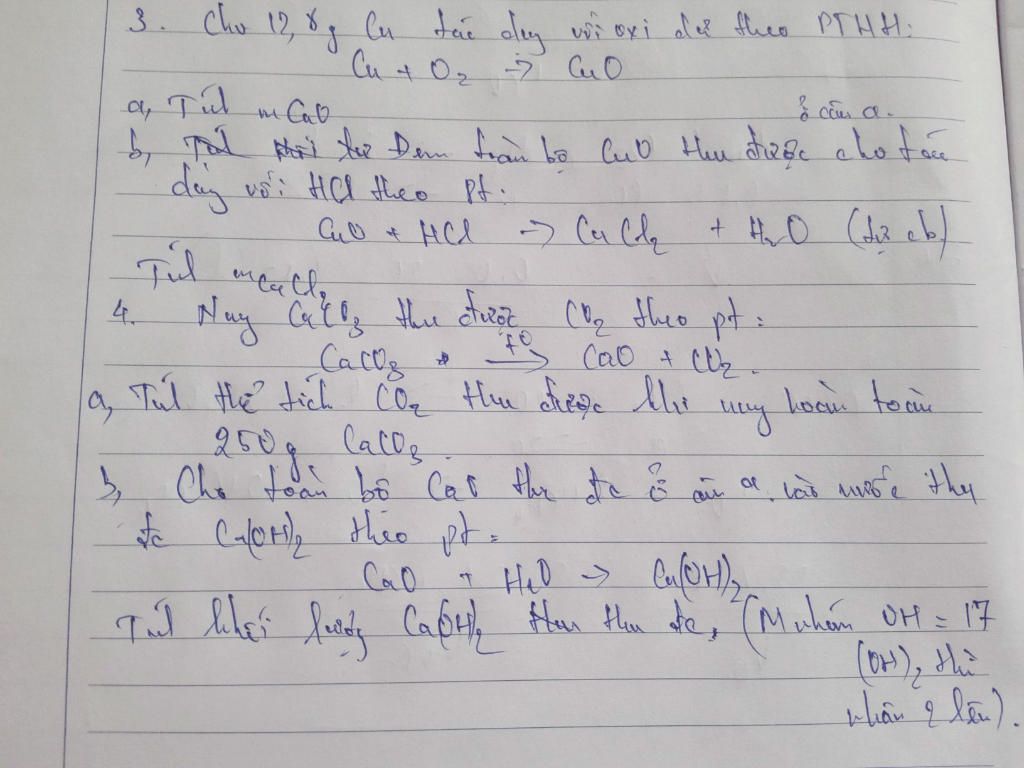 3. Cho 12,8g Cu tác dụng với oxi dư theo PTHH:
Cu + O2 → CuO
a, Tính mCuO
ở câu a.
b, Đem toàn bộ CuO thu được cho tác
dụng với HCl theo pt:
CuO + HCl → CuCl2 + H2O (tự cb)
Tính mCuCl2
4. Nung CaCO3 thu được CO2 theo pt:
CaCO3 t° → CaO + CO2.
a, Tính thể tích CO2 thu được khi nung hoàn toàn
250g CaCO3.
b, Cho toàn bộ CaO thu đc ở câu a vào nước thu
đc Ca(OH)2 theo pt:
CaO + H2O → Ca(OH)2
Tính khối lượng Ca(OH)2 thu đc, (M nhóm OH = 17
(OH)2 thì
nhân 2 lên).